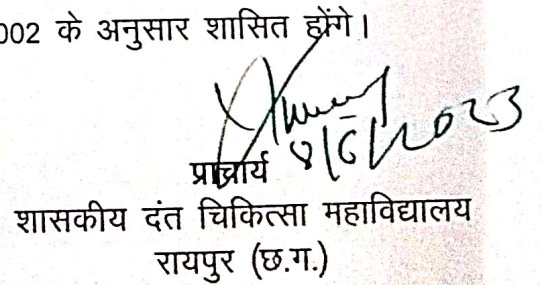 002 के अनुसार शासित होंगे।
8/6/2023
प्राचार्य
शासकीय दंत चिकित्सा महाविद्यालय
रायपुर (छ.ग.)